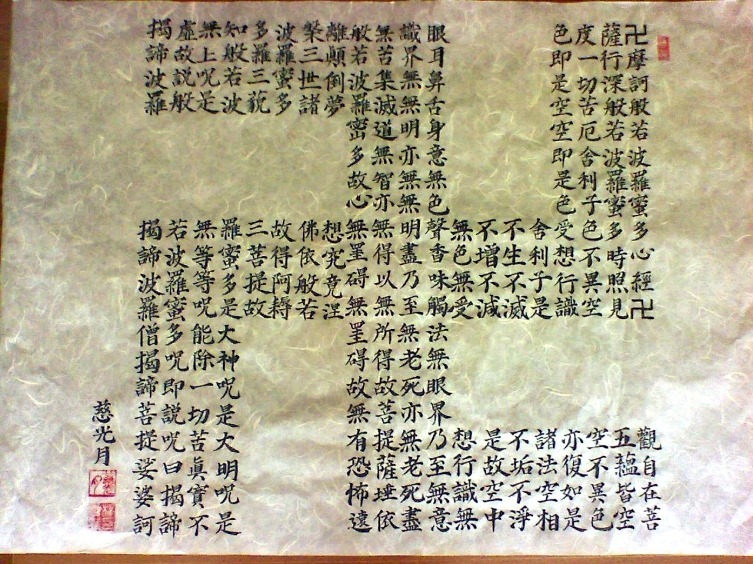 卍摩訶般若波羅蜜多心經卍 觀自在菩
薩行深般若波羅蜜多時照見 五蘊皆空
度一切苦厄舍利子色不異空 空不異色
色即是空空即是色受想行識 亦復如是
舍利子是 諸法空相
不生不滅 不垢不淨
不增不減 是故空中
無色無受 想行識無
眼耳鼻舌身意無色聲香味觸法無眼界乃至無意
識界無無明亦無無明盡乃至無老死亦無老死盡
無苦集滅道無智亦無得以無所得故菩提薩埵依
般若波羅蜜多故心無罣碍無罣碍故無有恐怖遠
離顛倒夢 想究竟涅
槃三世諸 佛依般若
波羅蜜多 故得阿耨
多羅三藐 三菩提故
知般若波 羅蜜多是大神呪是大明呪是
無上呪是 無等等呪能除一切苦真實不
虛故説般 若波羅蜜多呪即説呪曰揭諦
揭諦波羅 揭諦波羅僧揭諦菩提娑婆訶
慈光月